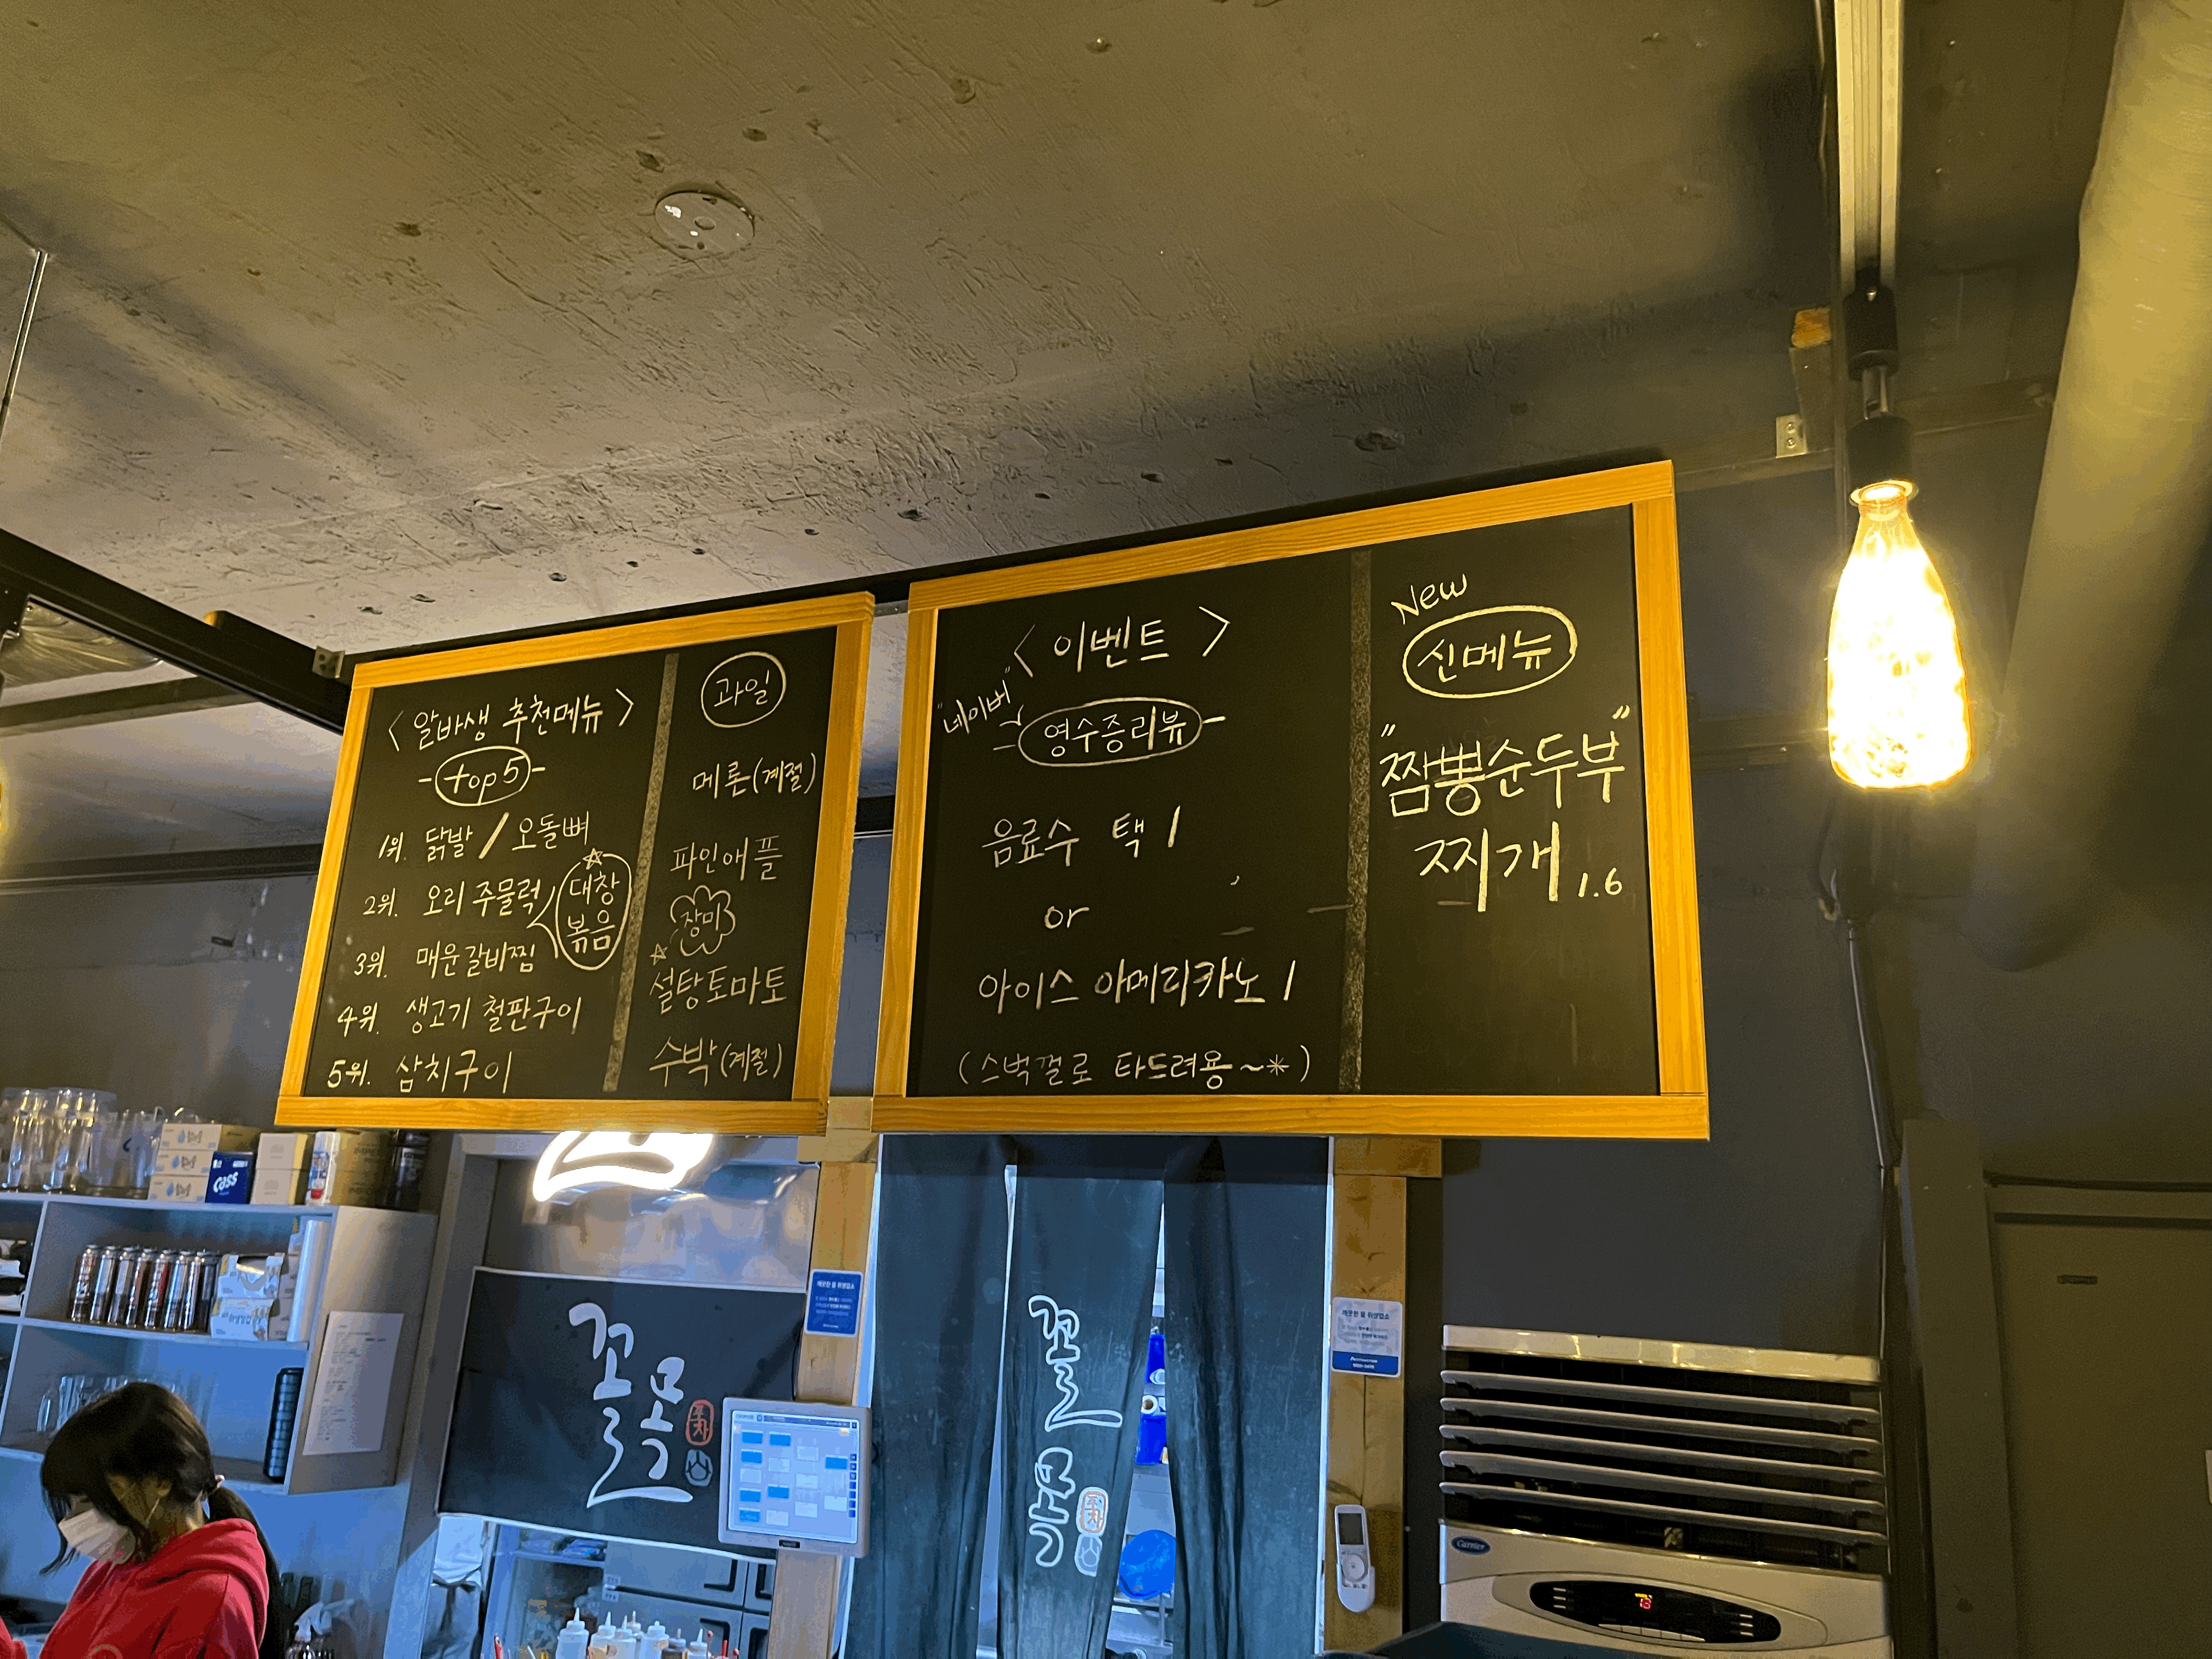 < 알바생 추천메뉴 >
- top 5 -
1위. 닭발 / 오돌뼈
2위. 오리 주물럭
대창
볶음
3위. 매운갈비찜
4위. 생고기 철판구이
5위. 삼치구이
과일
메론(계절)
파인애플
장미
설탕토마토
수박(계절)
< 이벤트 >
"네이버"
영수증리뷰
음료수 택 1
or
아이스 아메리카노 1
(스벅껄로 타드려용~*)
New
신메뉴
"짬뽕순두부"
찌개 1.6
Cass
꼴목
포차
꼴목
포차
Carrier